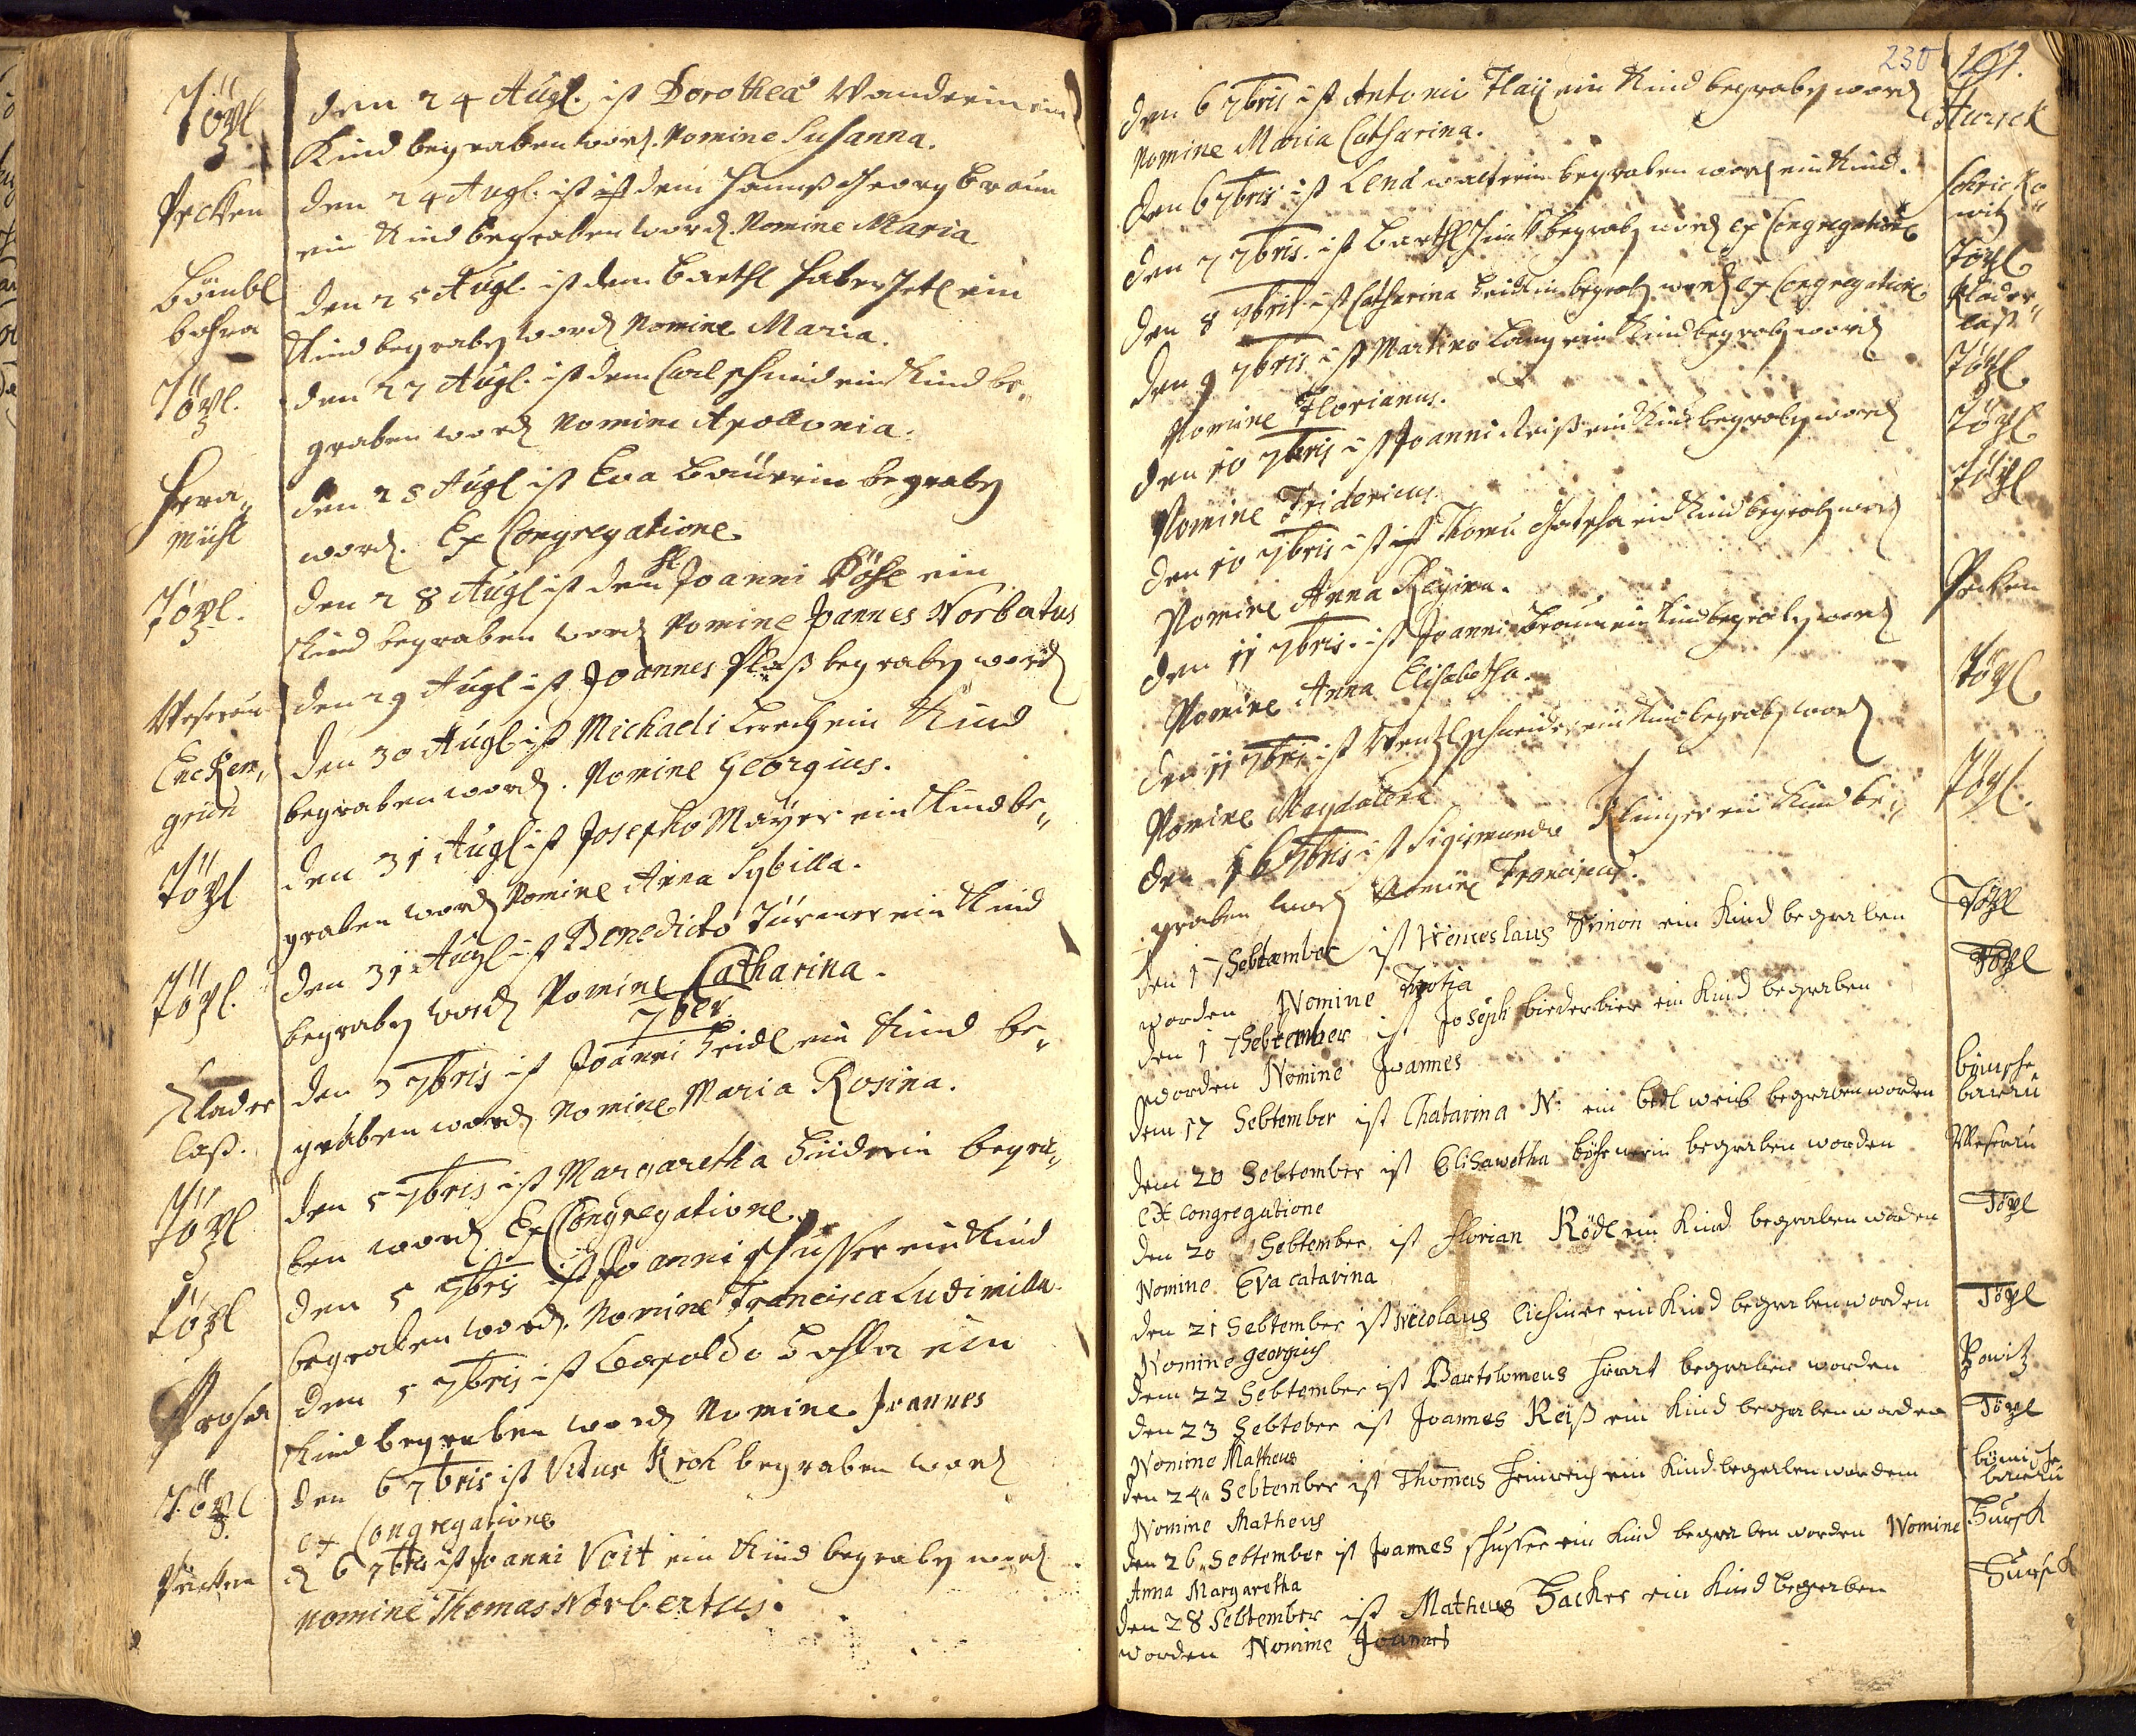 Töpl
den 24 Augl. ist Dorothea Wanderin ein
Kind begraben word. Nomine Susanna.
Pecken
den 24 Augl. ist ist dem Hannß Georg Braun
ein Kind begraben word. Nomine Maria
Böhmbl
bohra
den 25 Augl. ist dem Barthl ein
Kind begraben word Nomine Maria.
Töpl.
den 27 Augl. ist dem Carl Schmid ein Kind be„
graben word Nomine Apollonia.
Hera„
mühl
den 28 Augl ist Eva Baurin begraben
word. Ex Congregatione
Töpl.
den 28 Augl ist dem H Joanni Pöhl ein
Kind begraben word Nomine Joannes Norbatus
Weserau
den 29 Augl ist Joannes Plaß begraben word
Encken„
grün
den 30 Augl ist Michaeli Lerch ein Kind
begraben word. Nomine Georgius.
Töpl
den 31 Augl ist Josepho Mayer ein Kind be„
graben word Nomine Anna Sybilla.
Töpl.
den 31 Augl ist Benedicto Türmer ein Kind
begraben word Nomine Catharina.
7ber
Klader
laß.
den 3 7bris ist Joanni Heidl ein Kind be„
graben word Nomine Maria Rosina.
Töpl
den 5 7bris ist Margaretha begra„
ben word. Ex Congregatione
Töpl
den 5 7bris ist Joanni Schusser ein Kind
begraben word. Nomine Francisca Ludimilla.
Prosa
den 5 7bris ist Leopoldo ein
Kind begraben word Nomine Joannes
Töpl
den 6 7bris ist Vitus Krok begraben word
ex Congregatione
Pecken
d 6 7bris ist Joanni Voit ein Kind begraben word
nomine Thomas Norbertus.
230
den 6 7bris ist Antonio Flaÿ ein Kind begraben word
Hursck
Nomine Maria Catharina.
den 6 7bris ist Lena begraben word ein Kind.
Schricko„
witz
den 7 7bris. ist Barthl begraben word ex Congregatione
Töpl
den 8 7bris ist Catharina Heidlin begraben word ex Congregatione
Klader„
laß
den 9 7bris ist Martino Lang ein Kind begraben word
Töpl
Nomine Florianus.
den 10 7bris ist Joanni Reiß ein Kind begraben word
Töpl
Nomine Fridericus
den 10 7bris ist ist Thoma ein Kind begraben word
Töpl
Nomine Anna Regina.
den 11 7bris. ist Joanni Braun ein Kind begraben word
Pecken
Nomine Anna Elisabetha
den 11 7bris ist Wentzl Schneider ein Kind begraben word
Töpl
Nomine Magdalena
den 16 7bris ist Sigismundo Klinger ein Kind be„
Töpl.
graben word Nomine Franciscus.
den 17 Sebtember ist Wenceslaus Simon ein Kind begraben
Töpl
worden Nomine
den 17 Sebtember ist Joseph biederbier ein Kind begraben
Töpl
worden Nomine Joannes
dem 17 Sebtember ist Chatarina N: ein betl weib begraben worden
bömische
baurau
dem 20 Sebtember ist Elisawetha böhmerin begraben worden
Weserau
ex congregatione
den 20 Sebtember ist Florian Rödl ein Kind begraben worden
Töpl
Nomine Eva catarina
den 21 Sebtember ist Nicolaus Eichiner ein Kind begraben worden
Töpl
Nomine georgius
dem 22 Sebtember ist Bartolomeus begraben worden
Powitz
den 23 Sebtober ist Joannes Reiß ein Kind begraben worden
Töpl
Nomine Matheus
den 24 Sebtember ist Thomas Heinrich ein Kind begraben worden
bömische
baurau
Nomine Matheus
den 26 Sebtember ist Joannes Schusser ein Kind begraben worden Nomine
Hursck
Anna Margaretha
den 28 Sebtember ist Matheus Hacker ein Kind begraben
Hursck
worden Nomine Joannes